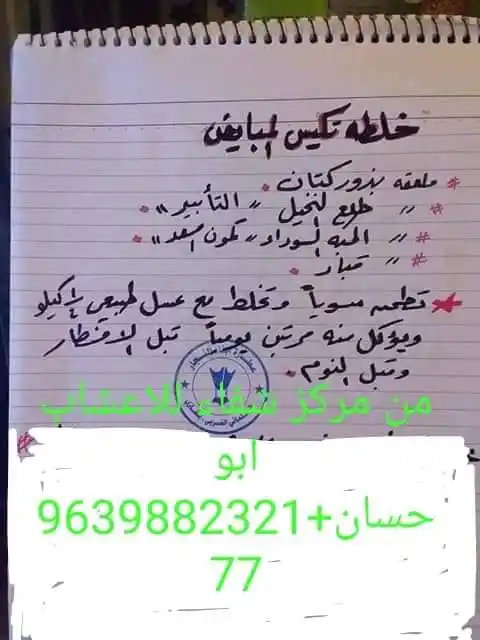 خلطه تكيس المبايض
* ملعقه بذور كتان .
* " طلع النخيل " التأبير " .
# " الحبه السوداء " كمون اسود " .
# " قبار .
* تطحن سوياً وتخلط مع عسل طبيعي ½ كيلو
ويؤكل منه مرتين يومياً قبل الافطار
وقبل النوم .
من مركز شفاء للاعشاب
ابو
حسان+9639882321
77